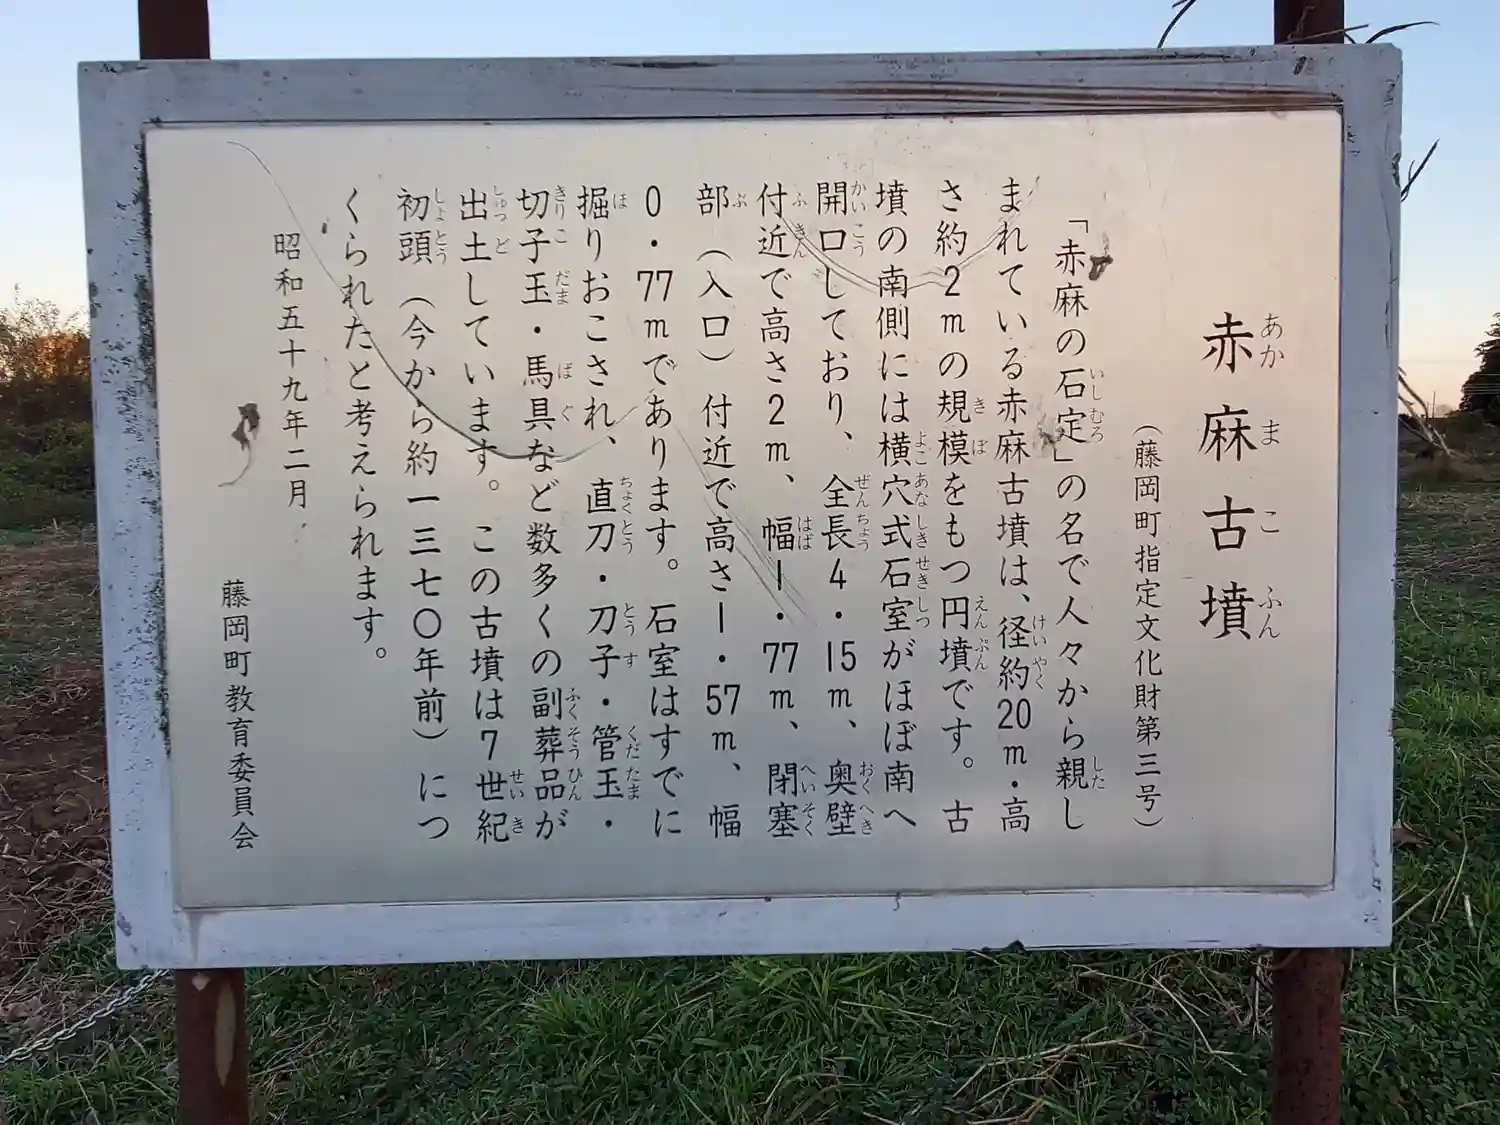 赤麻古墳
(藤岡町指定文化財第三号)
「赤麻の石定」の名で人々から親し
まれている赤麻古墳は、径約20m・高
さ約2mの規模をもつ円墳です。古
墳の南側には横穴式石室がほぼ南へ
開口しており、全長4・15m、奥壁
付近で高さ2m、幅1・77m、閉塞
部(入口)付近で高さ1・57m、幅
0・77mであります。石室はすでに
掘りおこされ、直刀・刀子・管玉・
切子玉・馬具など数多くの副葬品が
出土しています。この古墳は7世紀
初頭(今から約一三七〇年前)につ
くられたと考えられます。
昭和五十九年二月
藤岡町教育委員会